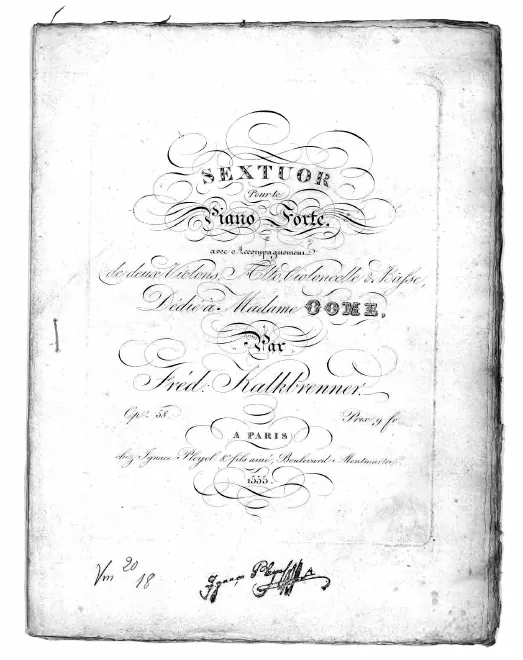 SEXTUOR
Pour le
Piano Forte,
avec Accompagnement
de deux Violons, Alto, Violoncelle & Basse,
Dédié à Madame COME,
Par
Fréd. Kalkbrenner.
Op: 58. Prix 9 fr
A PARIS
chez Ignace Pleyel & fils ainé, Boulevard Montmartre
1555.
Vm 20
18
Ignace Pleyel